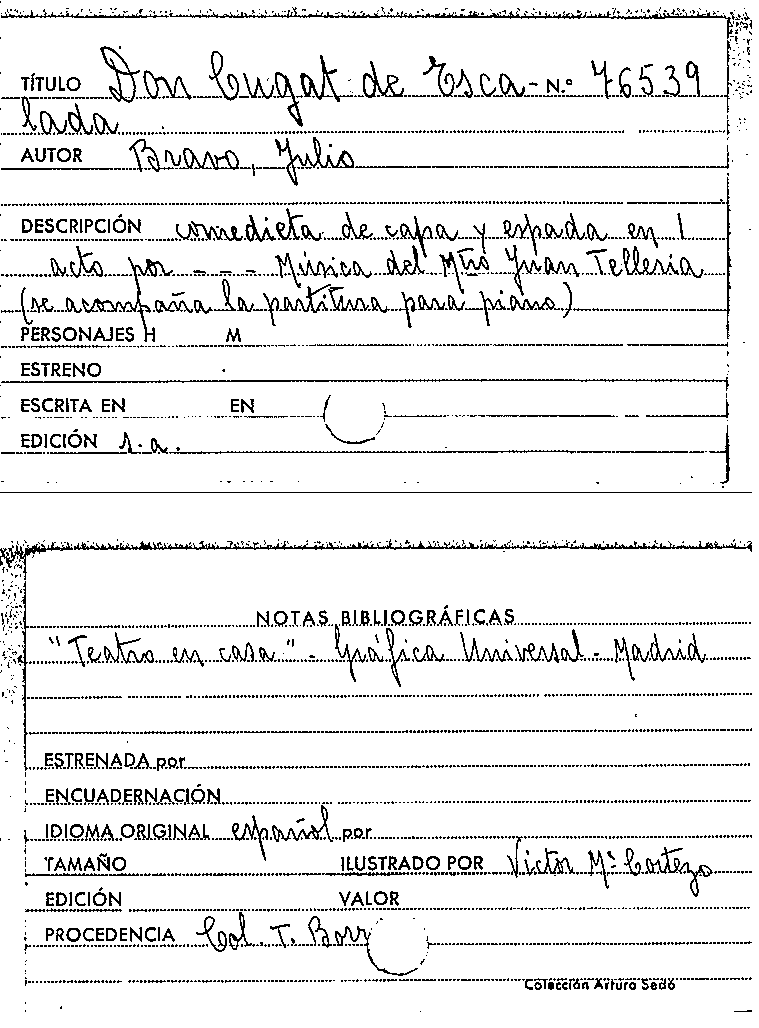 TÍTULO Don Cugat de Esca- N.º 76539
lada
AUTOR Bravo, Julio
DESCRIPCIÓN comedieta de capa y espada en 1
acto por - - - Música del Mtro Juan Telleria
(se acompaña la partitura para piano)
PERSONAJES H M
ESTRENO
ESCRITA EN EN
EDICIÓN s.a.
NOTAS BIBLIOGRÁFICAS
"Teatro en casa" - Gráfica Universal - Madrid
ESTRENADA por
ENCUADERNACIÓN
IDIOMA ORIGINAL español por
TAMAÑO ILUSTRADO POR Victor Mª Cortezo
EDICIÓN VALOR
PROCEDENCIA Col. T. Borr
Colección Arturo Sedó